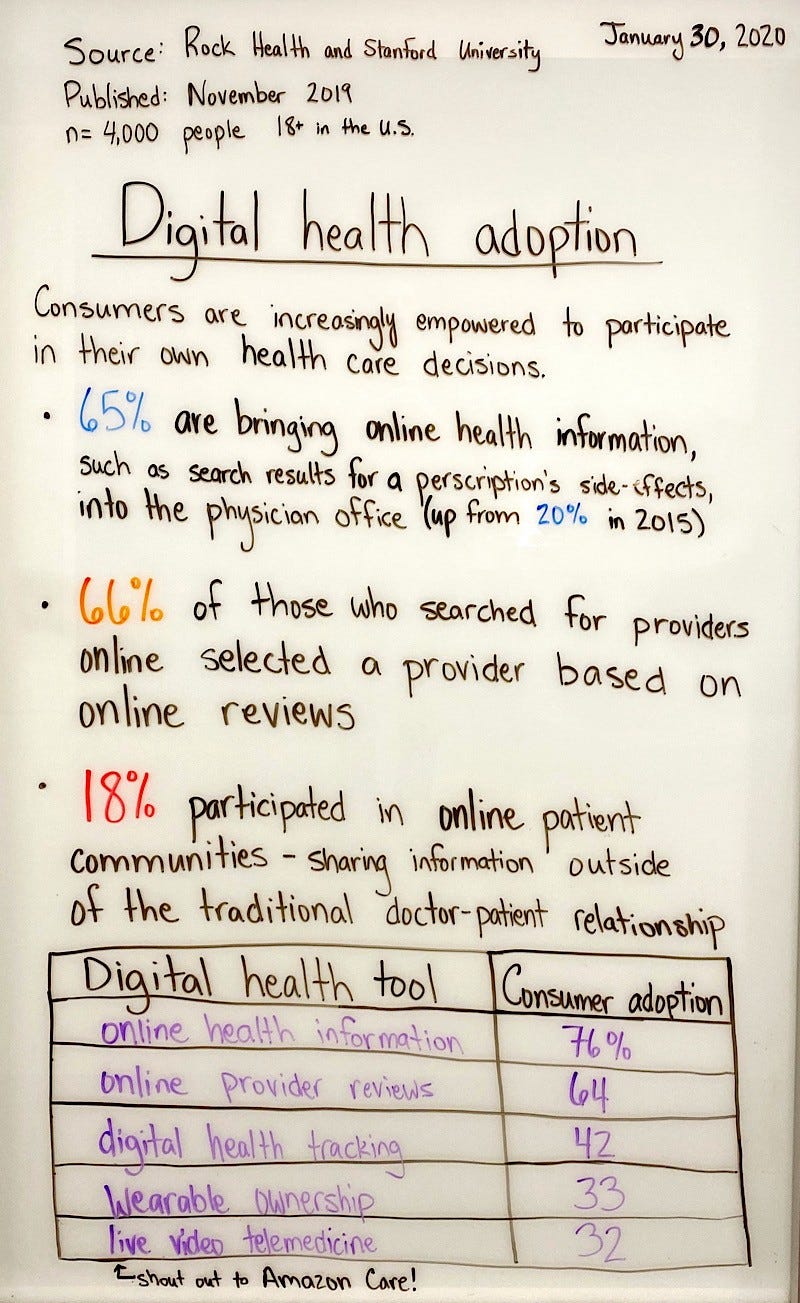 January 30, 2020
Source: Rock Health and Stanford University
Published: November 2019
n= 4,000 people 18+ in the U.S.
Digital health adoption
Consumers are increasingly empowered to participate
in their own health care decisions.
• 65% are bringing online health information,
such as search results for a perscription's side-effects,
into the physician office (up from 20% in 2015)
• 66% of those who searched for providers
online selected a provider based on
online reviews
• 18% participated in online patient
communities - sharing information outside
of the traditional doctor-patient relationship
Digital health tool Consumer adoption
online health information 76%
online provider reviews 64
digital health tracking 42
Wearable ownership 33
live video telemedicine 32
shout out to Amazon Care!